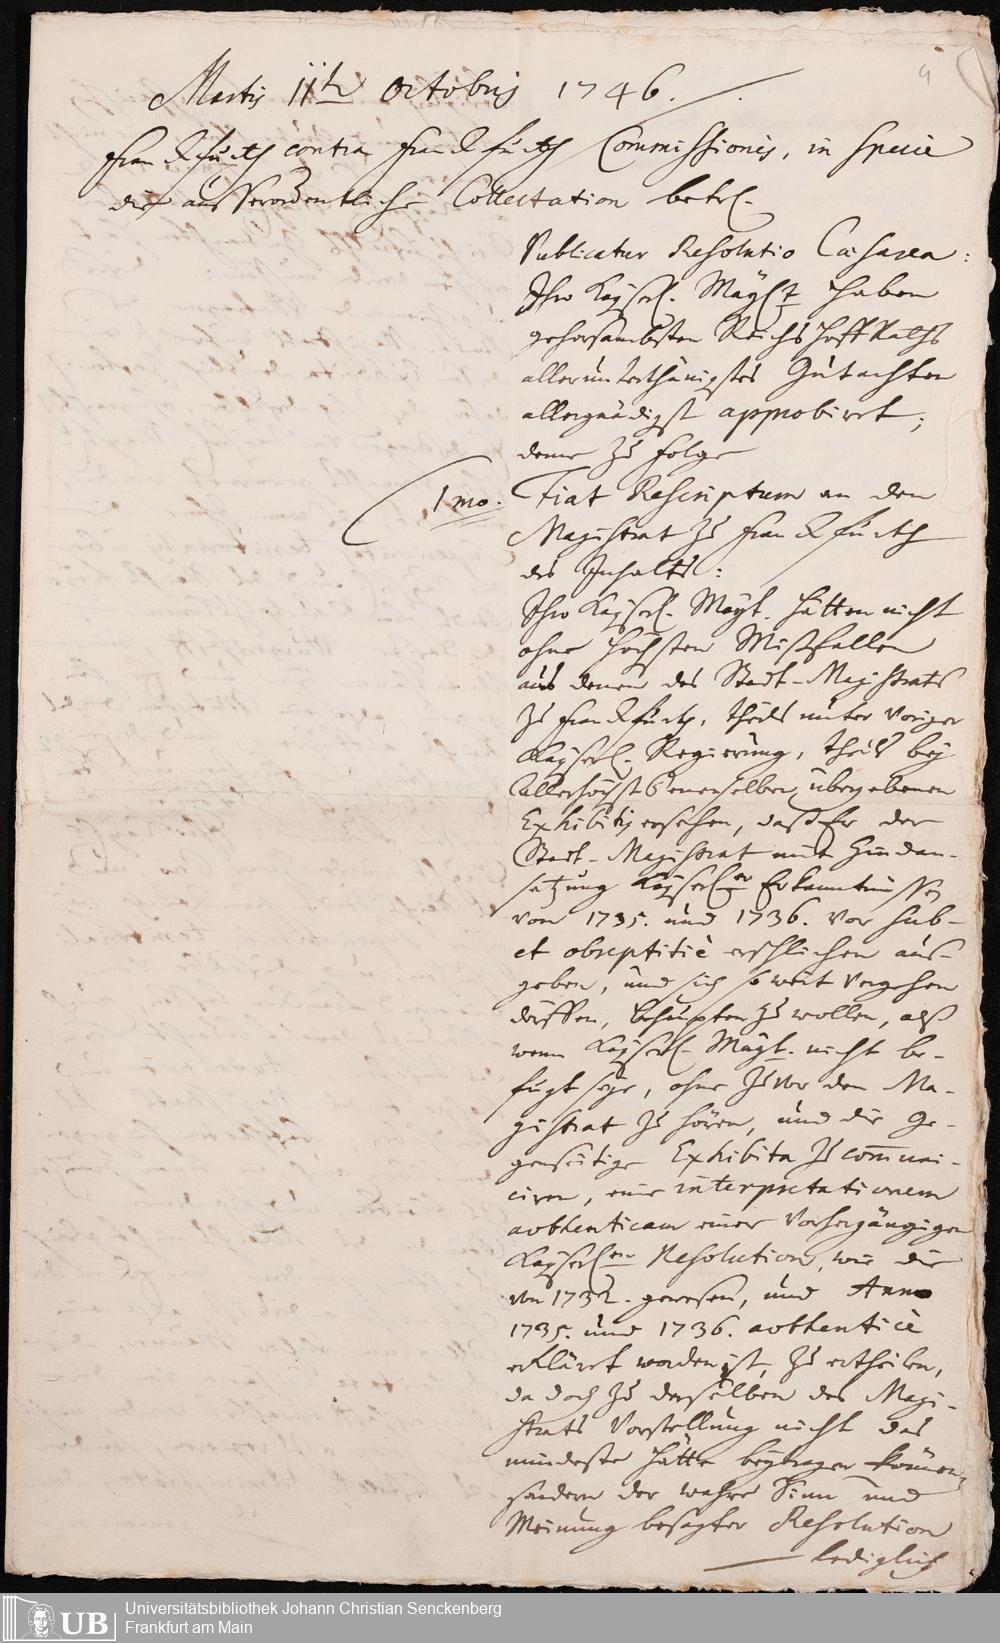 Martis 11ten Octobris 1746.
Franckfurth contra Franckfurth Commissionis, in specie
die ausserordentliche Collectation betrl.
Publicatur Resolutio Caesarea:
Ihro Kayserl. Maytt haben
gehorsambsten ReichsHoffRaths
allerunterthänigstes Gutachten
allergnädigst approbiret;
deme zu folge
1mo. Fiat Rescriptum an den
Magistrat zu Franckfurth
des Inhalts:
Ihro Kayserl. Mayt. hätten nicht
ohne höchsten Mißfallen
aus denen des Stadt-Magistrats
zu Franckfurth, theils unter voriger
Kayserl. Regierung, theils bey
Allerhöchst Denenselben übergebenen
Exhibitis ersehen, daß Er der
Stadt-Magistrat mit Hindan-
setzung Kayserler Erkanntnussen
von 1735. und 1736. vor sub-
et obreptitiè erschlichen aus-
geben, und sich so weit vergehen
dörffen, behaupten zu wollen, alß
wenn Kayserl. Mayt. nicht be-
fugt seye, ohne zuvor den Ma-
gistrat zu hören, und die ge-
genseitige Exhibita zu com̅uni-
ciren, eine interpretationem
authenticam einer vorhergängigen
Kayserlen Resolution, wie die
von 1732. gewesen, und Anno
1735. und 1736. authenticè
erklärt worden ist, zu ertheilen,
da doch zu derselben des Magi-
strats Vorstellung nicht das
mindeste hätte beytragen können,
sondern der wahre Sinn und
Meinung besagter Resolution
lediglich
UB
Universitätsbibliothek Johann Christian Senckenberg
Frankfurt am Main